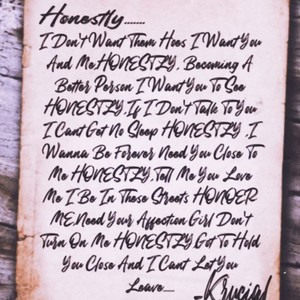 Honestly.......
I Don't Want Them Hoes I Want You
And Me HONESTLY, Becoming A
Better Person I Want You To See
HONESTLY,If I Don't Talk To You
I Cant Get No Sleep HONESTLY ,I
Wanna Be Forever Need You Close To
Me HONESTLY,Tell Me You Love
Me I Be In These Streets HONOER
ME,Need Your Affection Girl Don't
Turn On Me HONESTLY,Got To Hold
You Close And I Cant Let You
Leave....
-Krucial